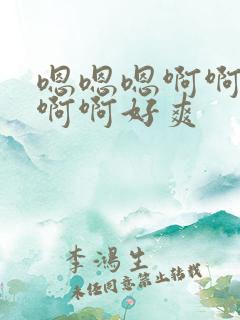 嗯嗯嗯啊啊
啊啊好爽
李鸿生
未经同意禁止转载